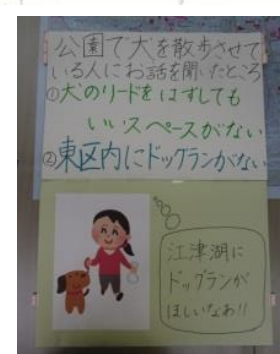 公園で犬を散歩させて
いる人にお話を聞いたところ
①犬のリードをはずしても
いいスペースがない
②東区内にドッグランがない
江津湖に
ドッグランが
ほしいなあ!!